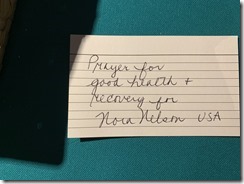 Prayer for
good health +
recovery for
Nora Nelson USA